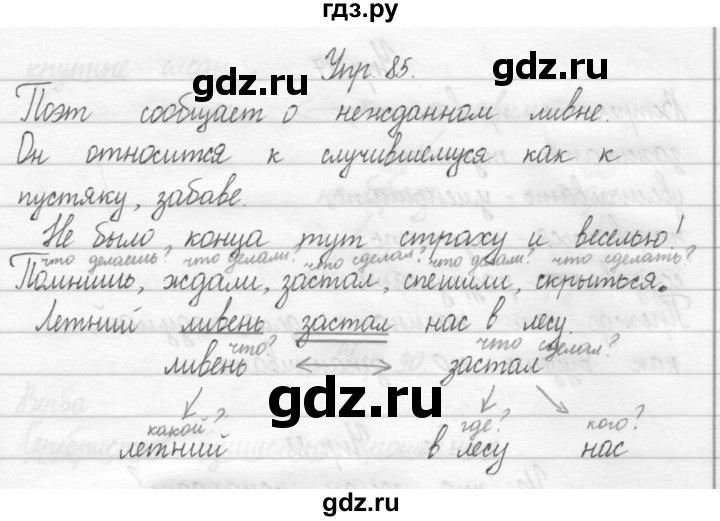 гдз.ру
Упр. 85.
gdz.ru
gdz.ru
Поэт сообщает о нежданном ливне.
Он относится к случившемуся как к
пустяку, забаве.
gdz.ru
gdz.ru
Не было конца тут страху и веселью!
что делаешь? что делали? что сделал? что делали? что сделать?
Помнишь, ждали, застал, спешили, скрыться.
Летний ливень застал нас в лесу.
что? что сделал?
ливень застал
gdz.ru
какой? где? кого?
летний в лесу нас
gdz.ru